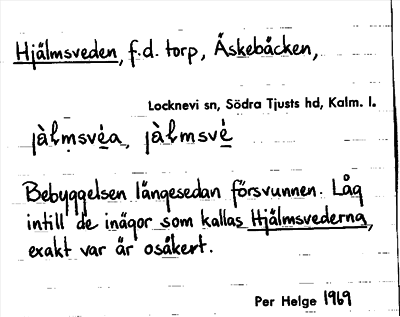 Hjälmsveden, f.d. torp, Äskebäcken,
Locknevi sn, Södra Tjusts hd, Kalm. l.
jàłmsvéa, jàłmsvé
Bebyggelsen längesedan försvunnen. Låg
intill de inägor som kallas Hjälmsvederna,
exakt var är osäkert.
Per Helge 1969